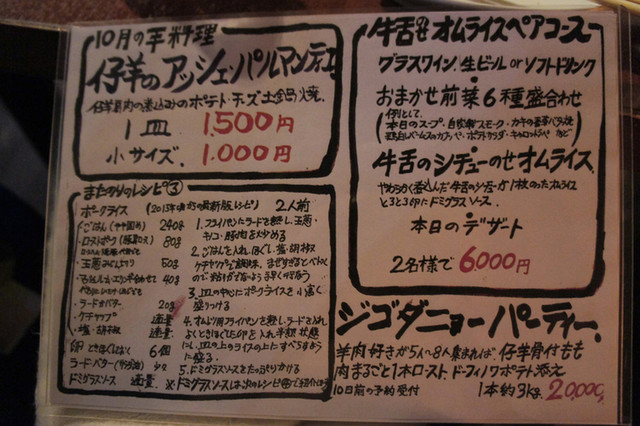 10月の羊料理
仔羊のアッシェ・パルマンティエ
仔羊肩肉の煮込みのポテト・チーズ土鍋焼
1皿 1,500円
小サイズ 1,000円
またのりのレシピ③
ポークライス (2015年頃の最新版レシピ) 2人前
・ごはん 240g
・ローストポーク 80g
・玉葱みじんぎり 50g
40g
・ラードorバター 20g
・ケチャップ 適量
・塩・胡椒 適量
・卵 ときほぐしておく 6個
・ラード・バター 少々
ドミグラスソース 適量
1. フライパンにラードを熱し、玉葱・
キノコ・豚肉を炒める
2. ごはんを入れ、ほぐし、塩・胡椒
3. 皿の中心にポークライスを小高く
盛りつける
4. オムレツ用フライパンを熱し、ラードを入れ
よくときほぐした卵を入れ半熟状態
にし、皿の上のライスの上にすべらすよう
に盛る
5. ドミグラスソースをたっぷりかける
※ドミグラスソースは次のレシピ④で紹介
牛舌のせオムライスペアコース
グラスワイン、生ビール or ソフトドリンク
おまかせ前菜6種盛合わせ
例として
本日のスープ、自家製スモーク、カキの
牛舌のシチューのせオムライス
やわらかく煮込んだ牛舌のシチューが1枚のったオムライス
とろとろ卵にドミグラスソース
本日のデザート
2名様で 6,000円
ジゴダニョーパーティー
羊肉好きが5人~8人集まれば、仔羊骨付もも
肉まるごと1本ロースト、ドーフィノワポテト添え
10日前の予約受付 1本約3kg 20,000